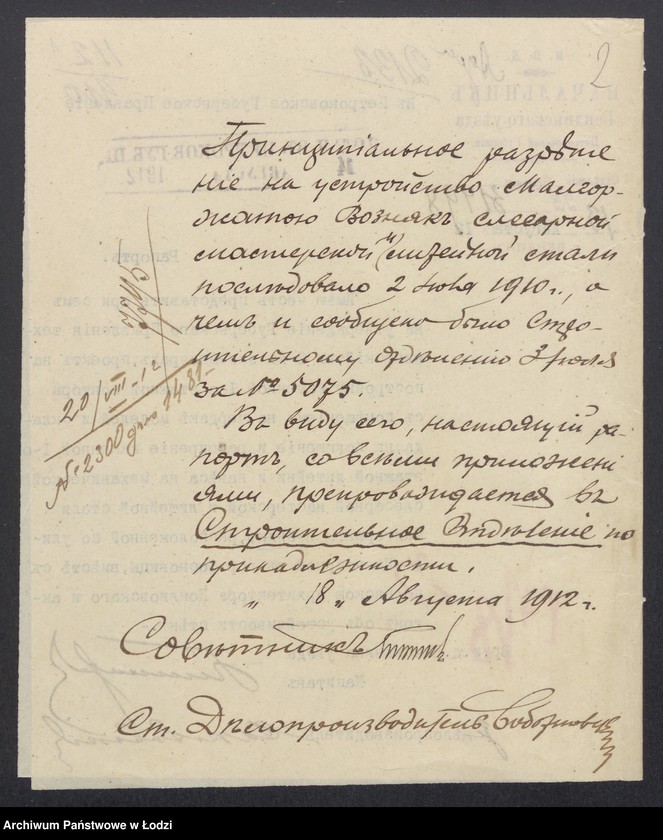 2
Принципіальное разрѣше
ніе на устройство Малгор-
жатою Вознякъ слесарной
мастерской "и литейной стали
послѣдовало 2 Іюня 1910 г., о
чемъ и сообщено было Строи-
тельному Отдѣленію 3 Іюля
за № 5075.
Въ виду сего, настоящій ра-
портъ, со всѣми приложені
ями, препровождается въ
Строительное Отдѣленіе по
принадлежности.
„ 18 „ Августа 1912 г.
Совѣтникъ
Ст. Дѣлопроизводитель
20/VIII-12
№ 2300
Archiwum Państwowe w Łodzi